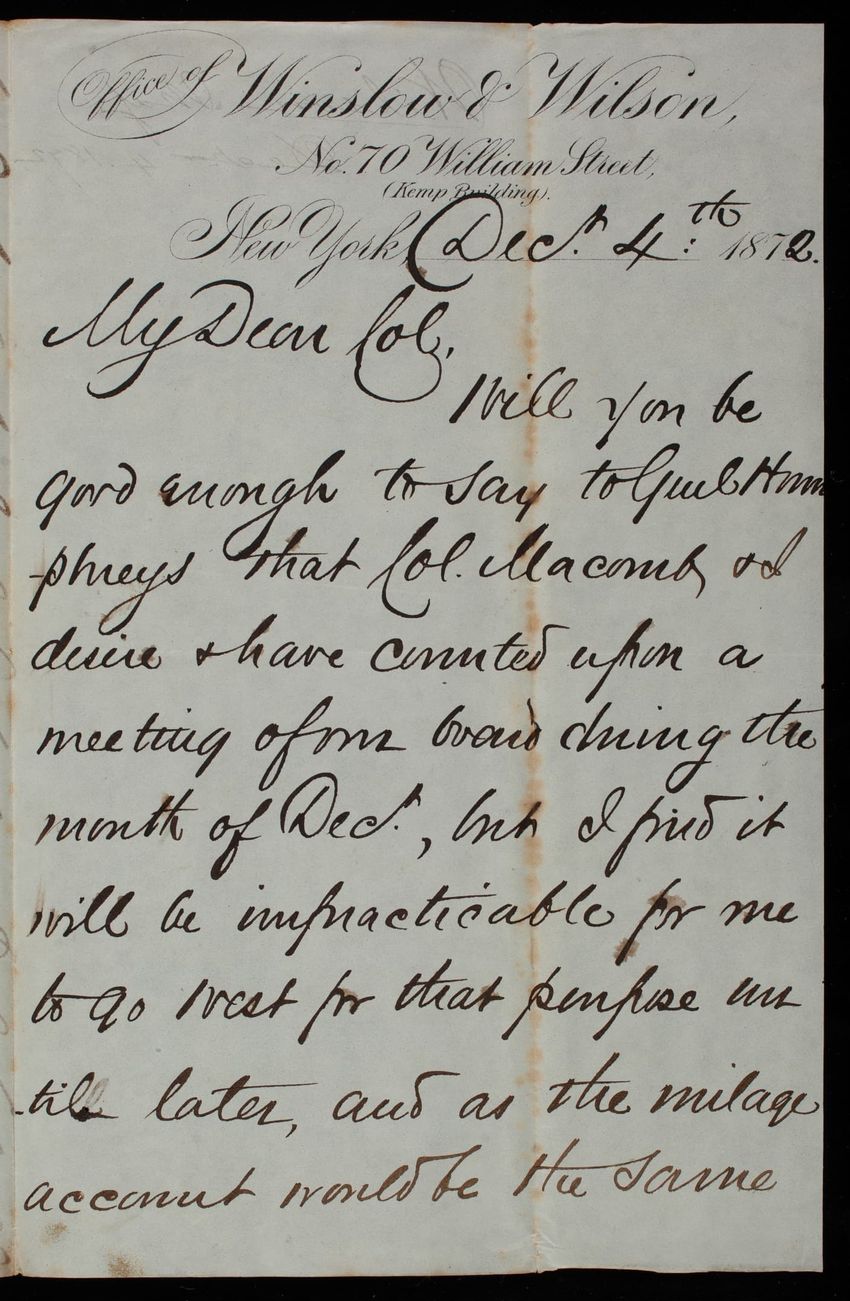 Office of Winslow & Wilson,
No. 70 William Street,
(Kemp Building).
New York, Decr. 4:th 1872.
My Dear Col.
Will you be
good enough to say to Genl Hum
-phreys that Col. Macomb, & I
desire & have counted upon a
meeting of our board during the
month of Decr., but I find it
will be impracticable for me
to go west for that purpose un
-til later, and as the milage
account would be the same